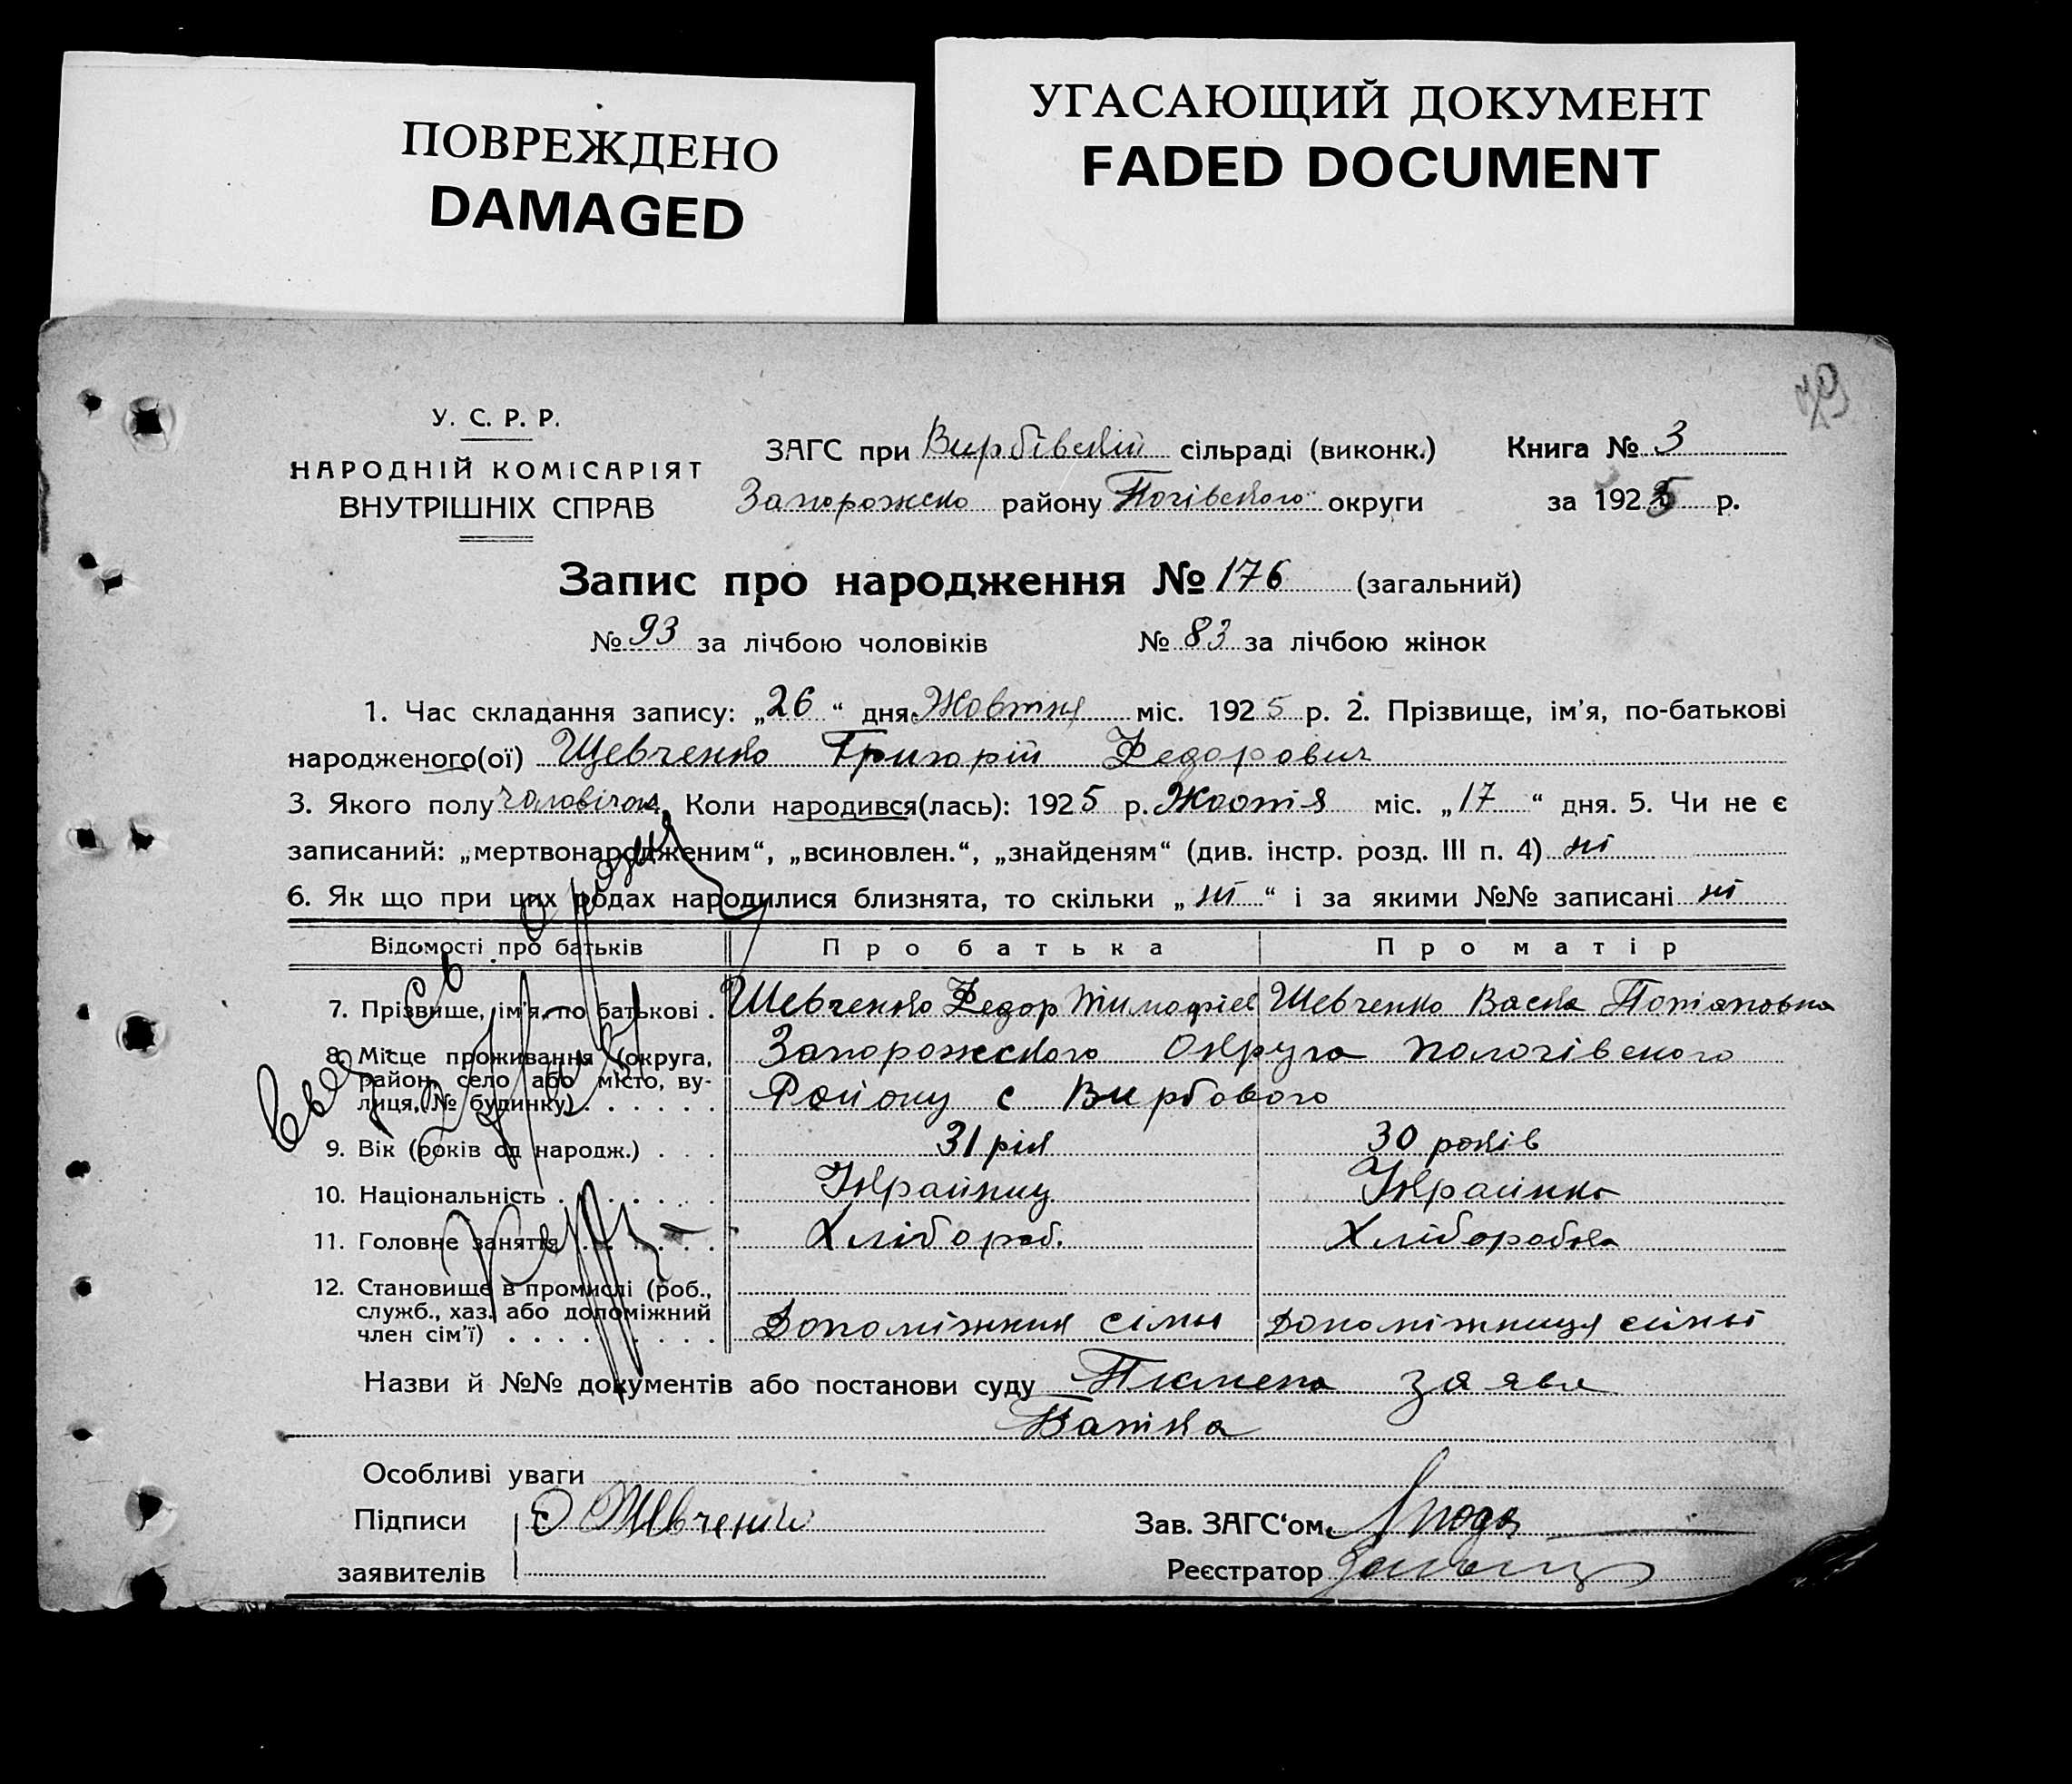 ПОВРЕЖДЕНО
DAMAGED
УГАСАЮЩИЙ ДОКУМЕНТ
FADED DOCUMENT
У. С. Р. Р.
НАРОДНІЙ КОМІСАРІЯТ
ВНУТРІШНІХ СПРАВ
ЗАГС при Вирбівскій сільраді (виконк.) Книга № 3
Запорожско району Погівского округи за 1925 р.
Запис про народження № 176 (загальний)
№ 93 за лічбою чоловіків № 83 за лічбою жінок
1. Час складання запису: „26“ дня Жовтня міс. 1925 р. 2. Прізвище, ім'я, по-батькові
народженого(ої) Шевченко Григорій Федорович
3. Якого полу 4. Коли народився(лась): 1925 р. міс. „17“ дня. 5. Чи не є
записаний: „мертвонародженим“, „всиновлен.“, „знайденям“ (див. інстр. розд. III п. 4) ні
6. Як що при цих родах народилися близнята, то скільки „ні“ і за якими №№ записані ні
Відомості про батьків Про батька Про матір
7. Прізвище, ім'я, по батькові . Шевченко Федор Тимофіев Шевченко Васка
8. Місце проживання (округа, Запорожского Округа Пологівского
район, село або місто, ву-
лиця, № будинку) . . . . . . Району с Вирбового
9. Вік (років од народж.) . . . 31 рік 30 років
10. Національність . . . . . . . Украинец Украинка
11. Головне заняття . . . . . . Хлібороб. Хлiборобка
12. Становище в промислі (роб.,
служб., хаз. або допоміжний
член сім'ї) . . . . . . . . . Допоміжник сімьи допоміжниця сімьї
Назви й №№ документів або постанови суду заява
Батька
Особливі уваги
Підписи Шевченко Зав. ЗАГС'ом
заявителів Реєстратор